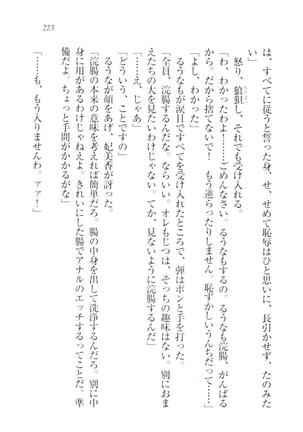 223
は、すべてに従うと誓った身、せ、せめて恥辱はひと思いに、長引かせず、たのみた
い」
怒り、狼狽し、それでも受け入れる。
「わ、わかったわよ！……ごめんなさい。るうなもするの。るうなも浣腸、がんばる
わ。だから捨てないで！　もう逆らったりしません。恥ずかしいうんちだって……」
「え、じゃあ」
るうなもが涙目ですべてを受け入れたところで、弾はポンと手を打った。
「全員、浣腸するんだな。ならいい。オレもじつは、そっちの趣味はない。別におま
えたちの大を見たいわけじゃない。てか、見ないように浣腸するんだ」
「どういう、ことですの」
妃美香が顔をあげ、訝った。
「浣腸の本来の意味を考えれば簡単だろ。腸の中身を出して洗浄するんだろ。別に中
身に用があるわけじゃねえよ。きれいにした腸でアナルのエッチするってことだ。準
備だよ。ちょっと手間がかかるがな」
「……も、もう入りませんわ。アァ！」